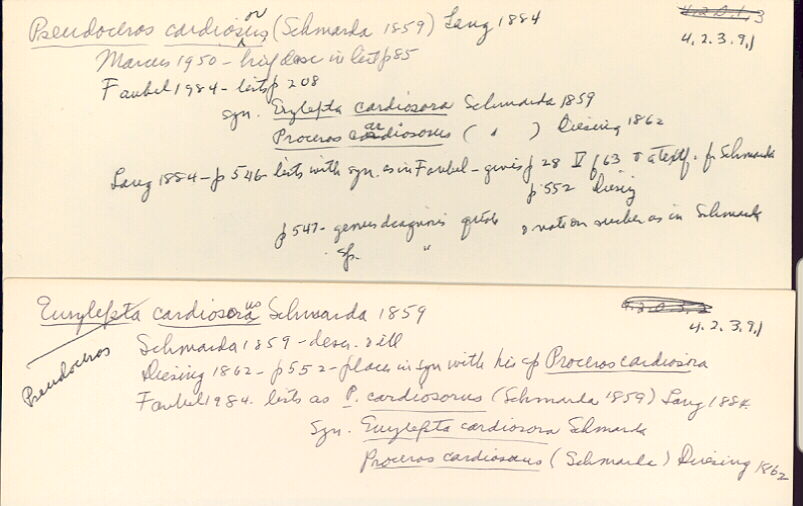 Pseudoceros cardiosorus (Schmarda 1859) Lang 1884
4.2.3.9.1
Marcus 1950 - brief desc in list p85
Faubel 1984 - lists p 208
syn. Eurylepta cardiosora Schmarda 1859
Proceros cardiosorus ( " ) Diesing 1862
Lang 1884 - p 546 lists with syn. as in Faubel - gives p 28 V f 63 & textf. fr Schmarda
p 552 Diesing
p 547 - genus diagnosis quote & notes as in Schmarda
sp. "
Eurylepta cardiosora us Schmarda 1859
4.2.3.9.1
Pseudoceros
Schmarda 1859 - descr. & ill
Diesing 1862 - p 552 - places in syn with his sp Proceros cardiosora
Faubel 1984. lists as P. cardiosorus (Schmarda 1859) Lang 1884
Syn. Eurylepta cardiosora Schmarda
Proceros cardiosorus (Schmarda) Diesing 1862